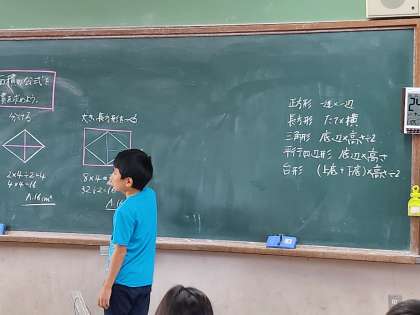 面積の公式を
求めよう。
分ける
2×4÷2=4
4×4=16
A.16cm²
大きい長方形を
8×4
32÷2=16
正方形 一辺×一辺
長方形 たて×横
三角形 底辺×高さ÷2
平行四辺形 底辺×高さ
台形 (上底+下底)×高さ÷2